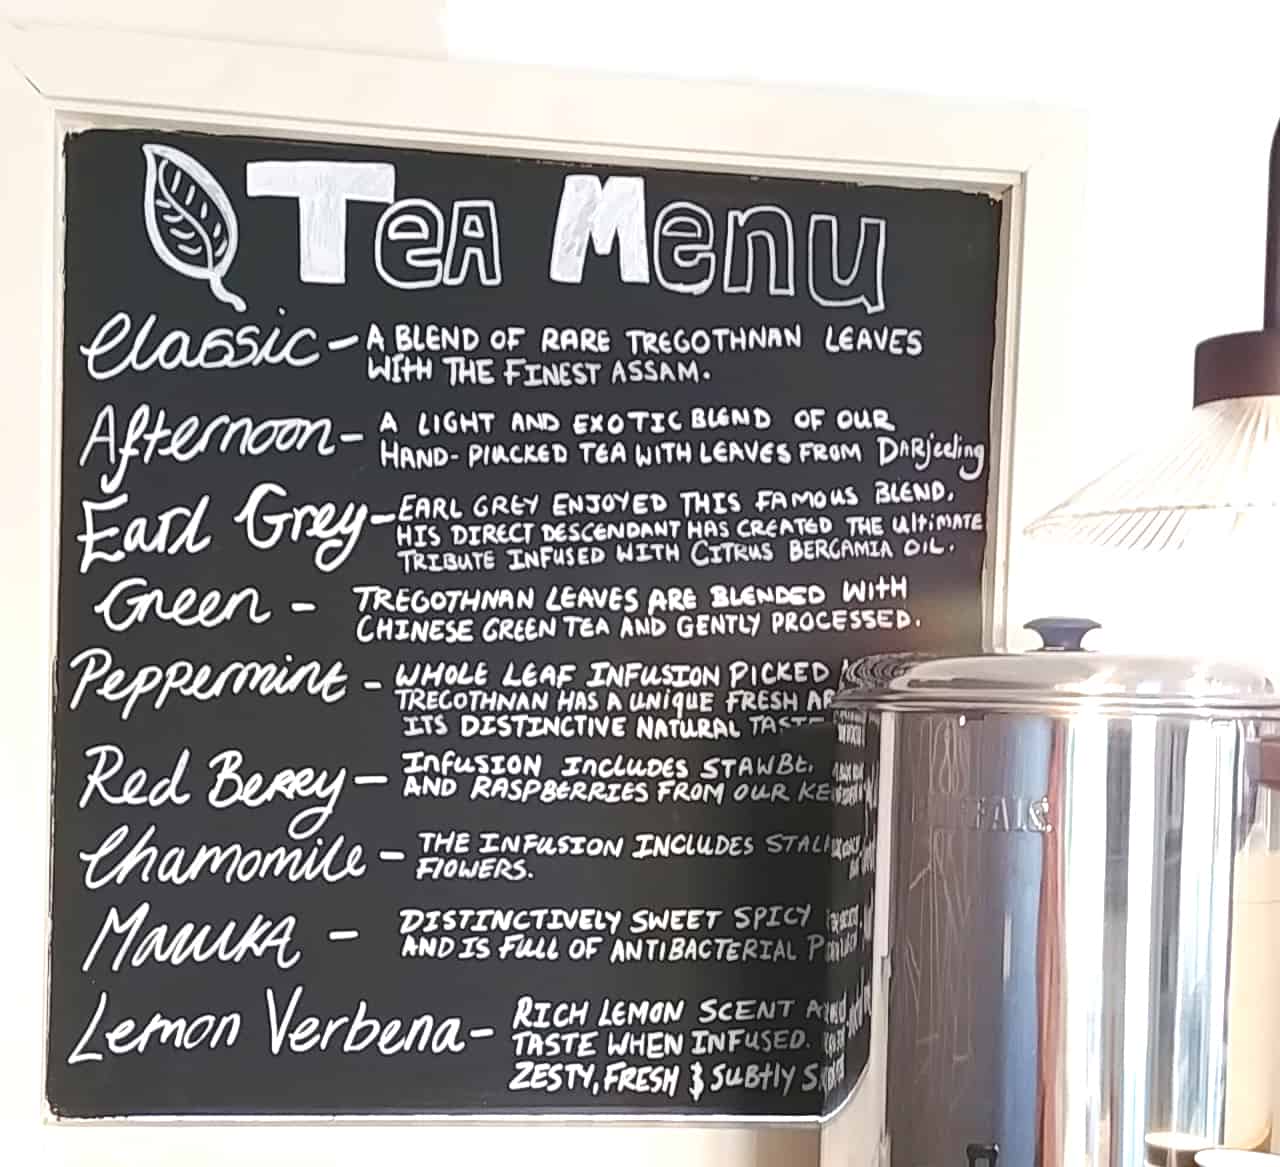 Tea Menu
Classic - A BLEND OF RARE TREGOTHNAN LEAVES
WITH THE FINEST ASSAM.
Afternoon - A LIGHT AND EXOTIC BLEND OF OUR
HAND-PLUCKED TEA WITH LEAVES FROM DARjeeling
Earl Grey - EARL GREY ENJOYED THIS FAMOUS BLEND.
HIS DIRECT DESCENDANT HAS CREATED THE UltiMATE
TRIBUTE INFUSED WITH CITRUS BERGAMIA OIL.
Green - TREGOTHNAN LEAVES ARE BLENDED WITH
CHINESE GREEN TEA AND GENTLY PROCESSED.
Peppermint - WHOLE LEAF INFUSION PICKED
TREGOTHNAN HAS A UNIQUE FRESH
ITS DISTINCTIVE NATURAL
Red Berry - INFUSION INCLUDES
AND RASPBERRIES FROM OUR
Chamomile - THE INFUSION INCLUDES
FLOWERS.
Manuka - DISTINCTIVELY SWEET SPICY
AND IS FULL OF ANTIBACTERIAL
Lemon Verbena - RICH LEMON SCENT
TASTE WHEN INFUSED.
ZESTY, FRESH & SUBTLY